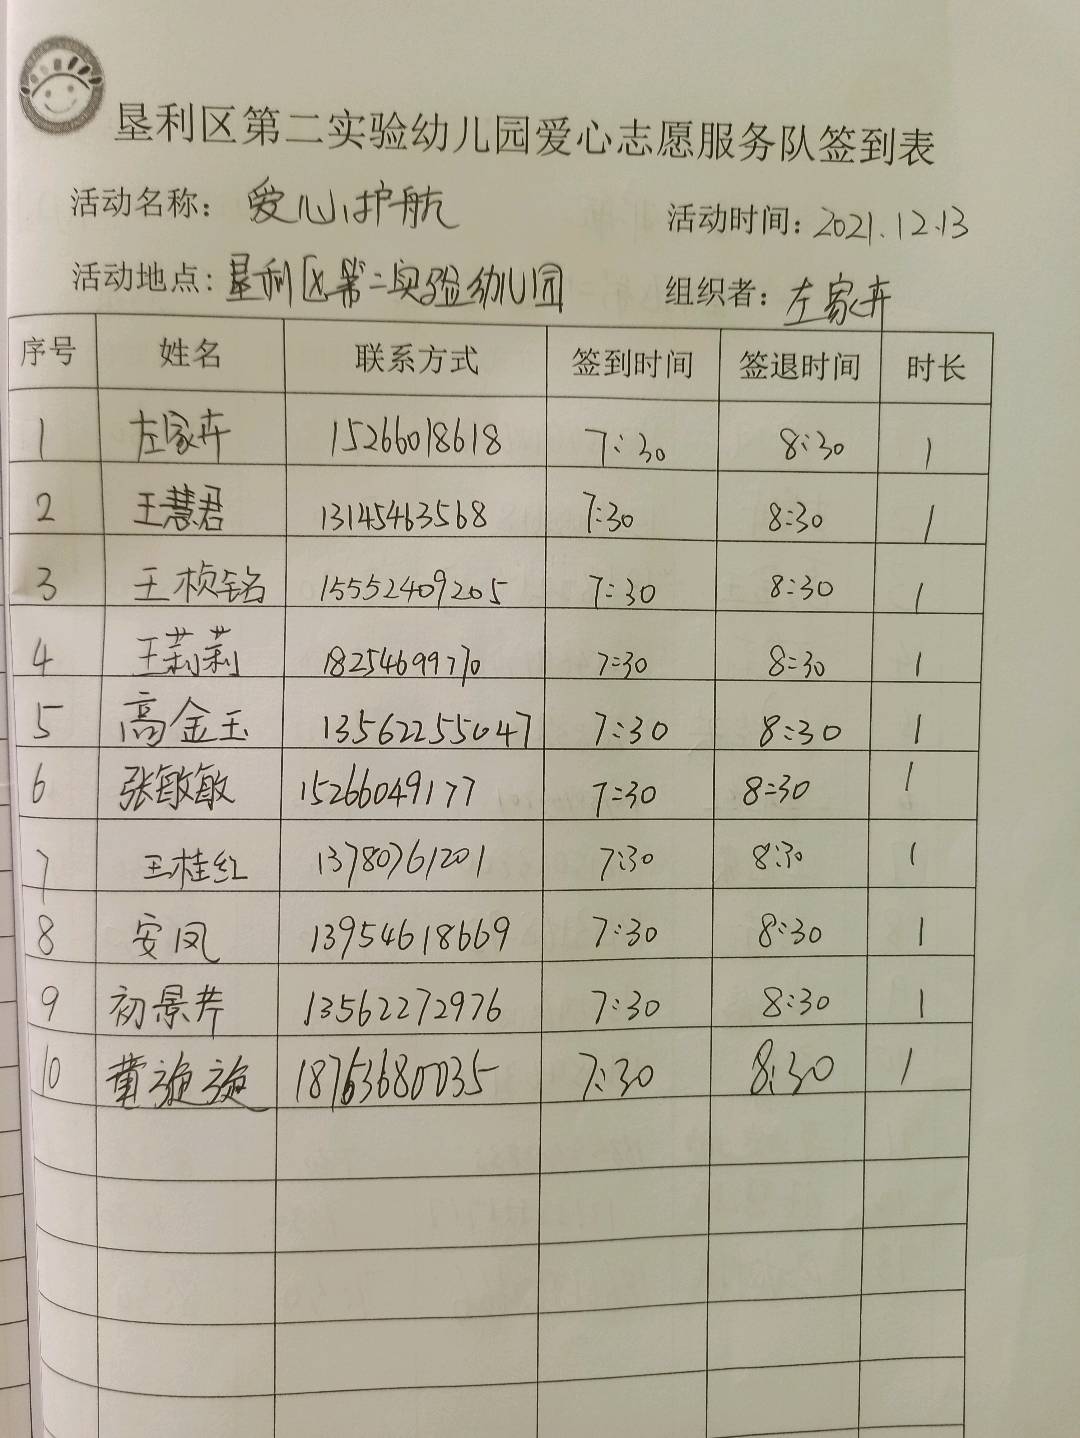 垦利区第二实验幼儿园爱心志愿服务队签到表
活动名称：爱心护航 活动时间：2021.12.13
活动地点：垦利区第二实验幼儿园 组织者：左家卉
序号 姓名 联系方式 签到时间 签退时间 时长
1 左家卉 15266018618 7:30 8:30 1
2 王慧君 13145463568 7:30 8:30 1
3 王桢铭 15552409205 7:30 8:30 1
4 王莉莉 18254699770 7:30 8:30 1
5 高金玉 13562255047 7:30 8:30 1
6 张敏敏 15266049177 7:30 8:30 1
7 王桂红 13780761201 7:30 8:30 1
8 安凤 13954618669 7:30 8:30 1
9 初景芹 13562272976 7:30 8:30 1
10 黄旋旋 18763680035 7:30 8:30 1